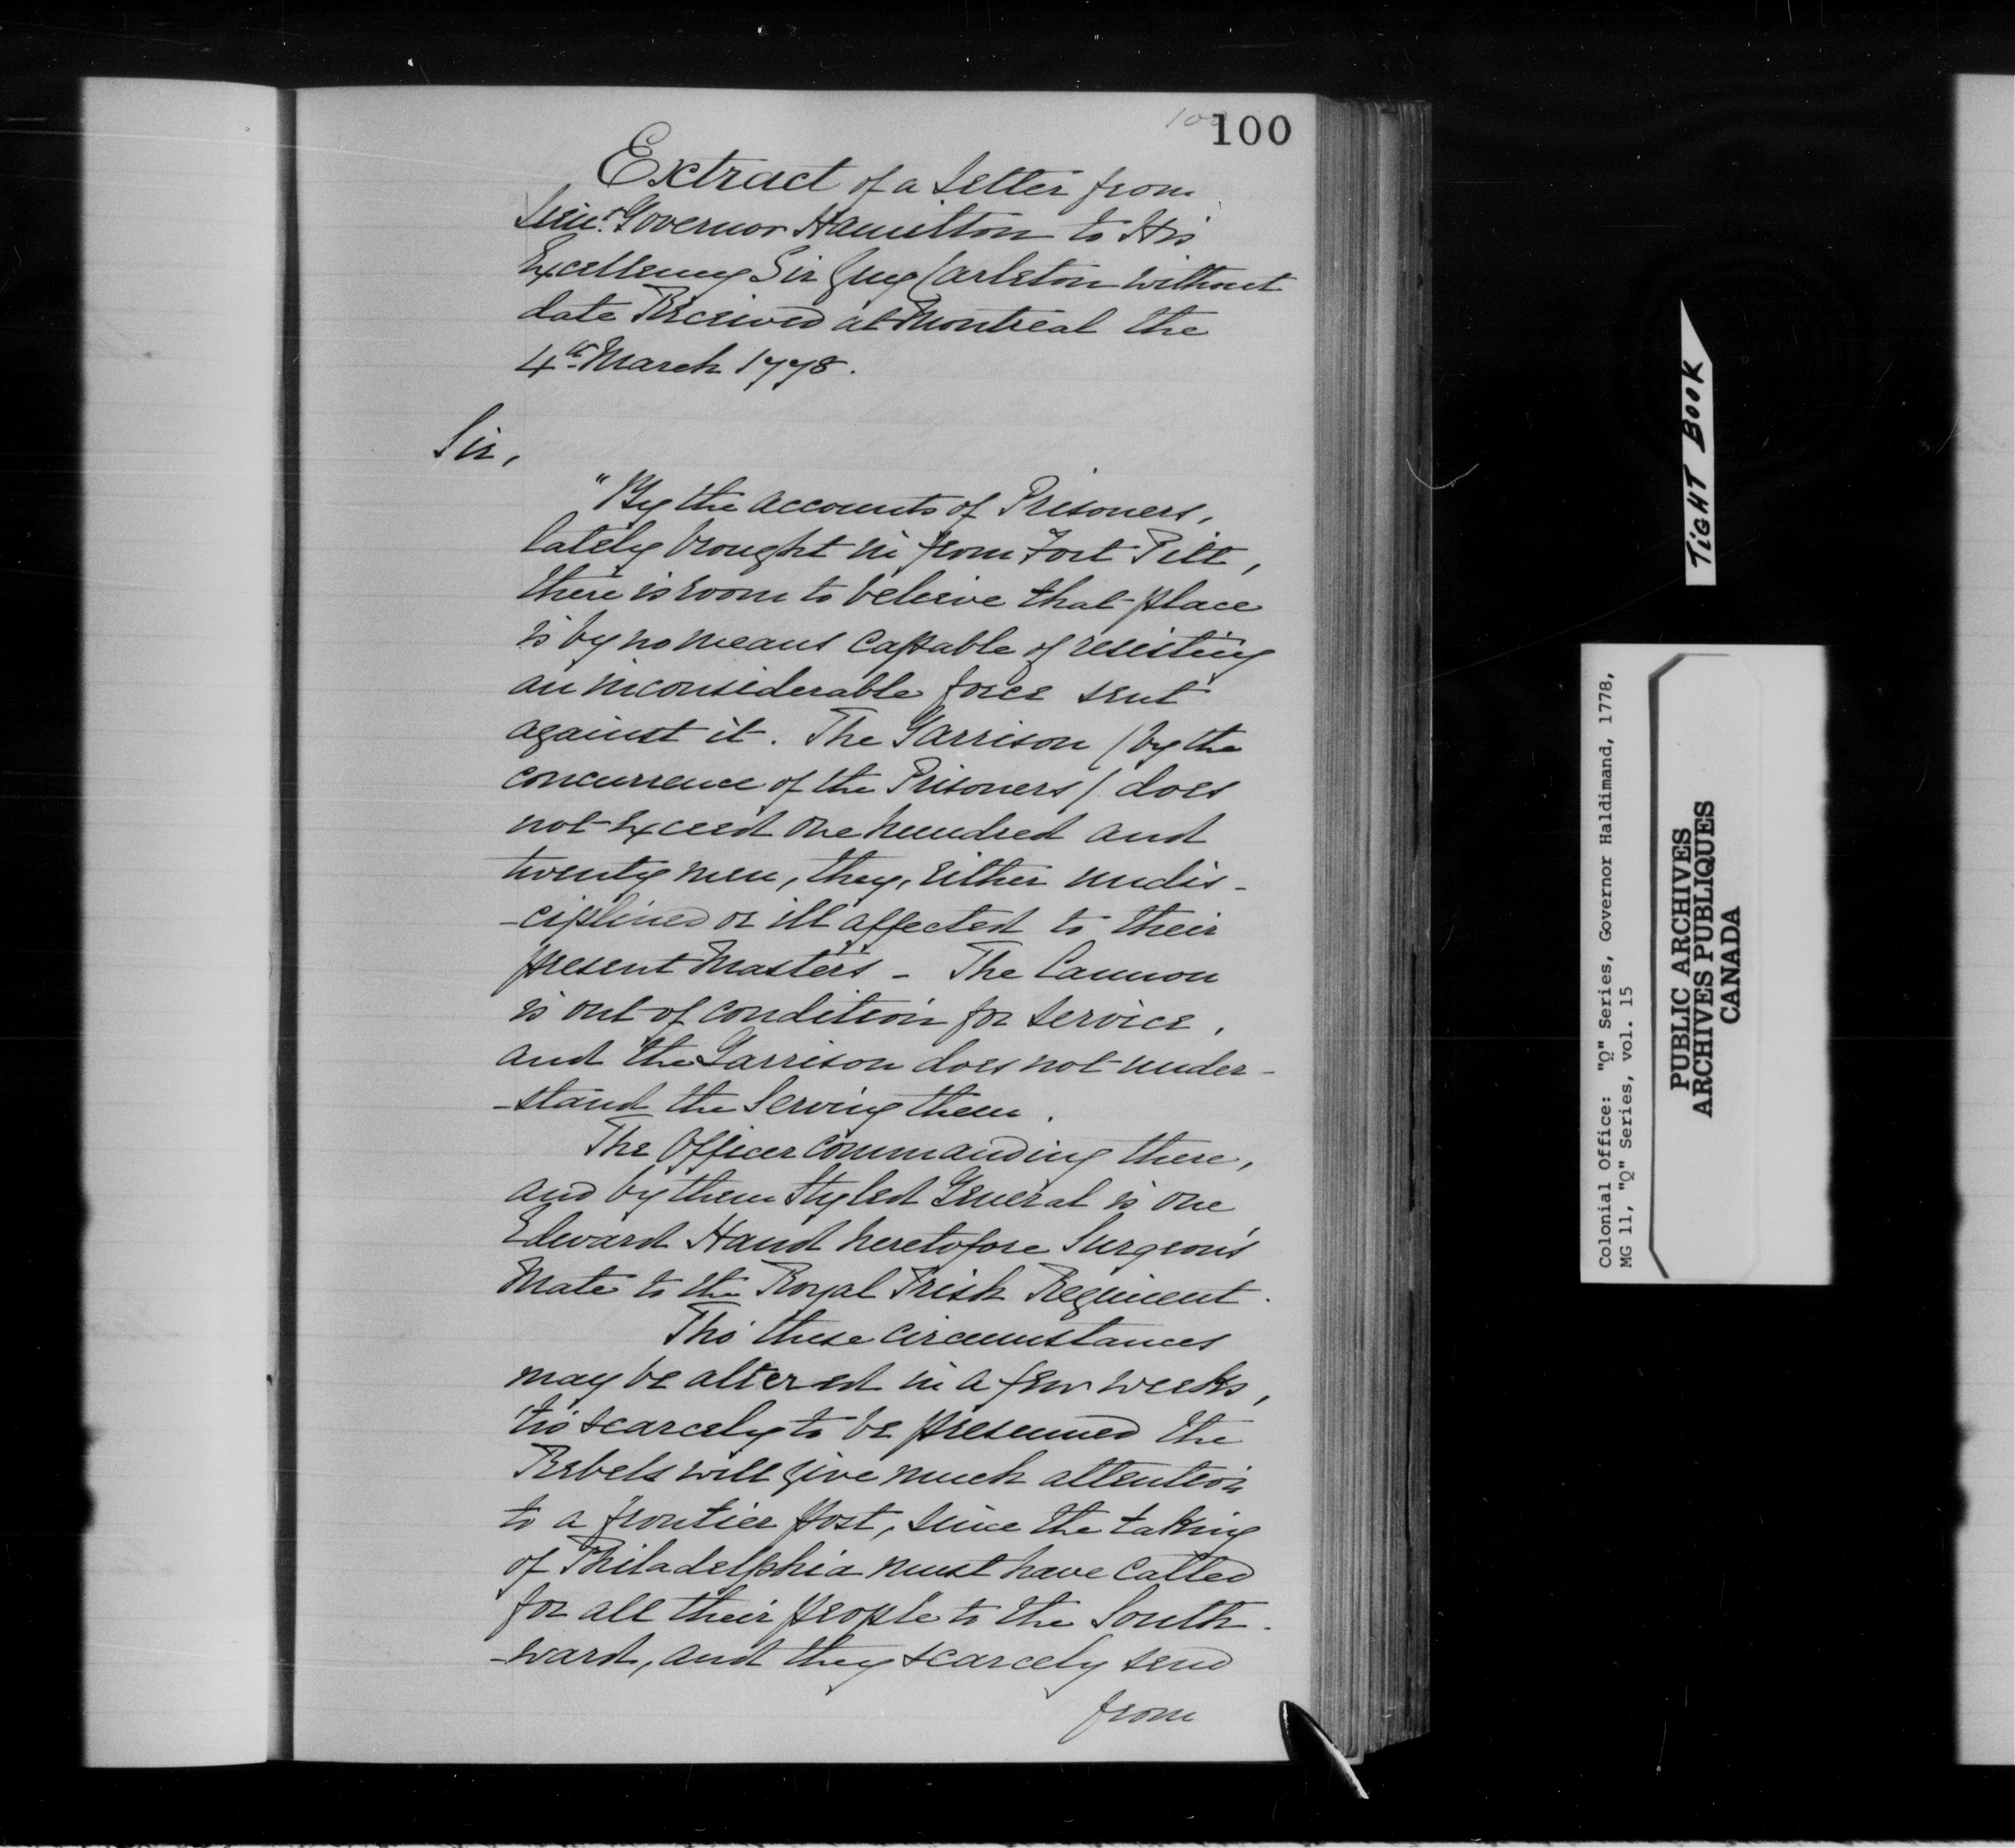 100
100
Extract of a Letter from
Lieut. Governor Hamilton to His
Excellency Sir Guy Carleton without
date Received at Montreal the
4th March 1778.
Sir,
"By the accounts of Prisoners,
lately brought in from Fort Pitt,
there is room to beleive that place
is by no means capable of resisting
an inconsiderable force sent
against it. The Garrison (by the
concurrence of the Prisoners) does
not exceed one hundred and
twenty men, they, either undis-
-ciplined or ill affected to their
present Masters - The Cannon
is out of condition for service,
and the Garrison does not under-
-stand the serving them.
The Officer commanding there,
and by them styled General is one
Edward Hand heretofore Surgeon's
Mate to the Royal Irish Regiment.
Tho' these circumstances
may be altered in a few weeks,
'tis scarcely to be presumed the
Rebels will give much attention
to a frontier post, since the taking
of Philadelphia must have called
for all their people to the South-
-ward, and they scarcely send
from
TIGHT BOOK
Colonial Office: "Q" Series, Governor Haldimand, 1778,
MG 11, "Q" Series, vol. 15
PUBLIC ARCHIVES
ARCHIVES PUBLIQUES
CANADA